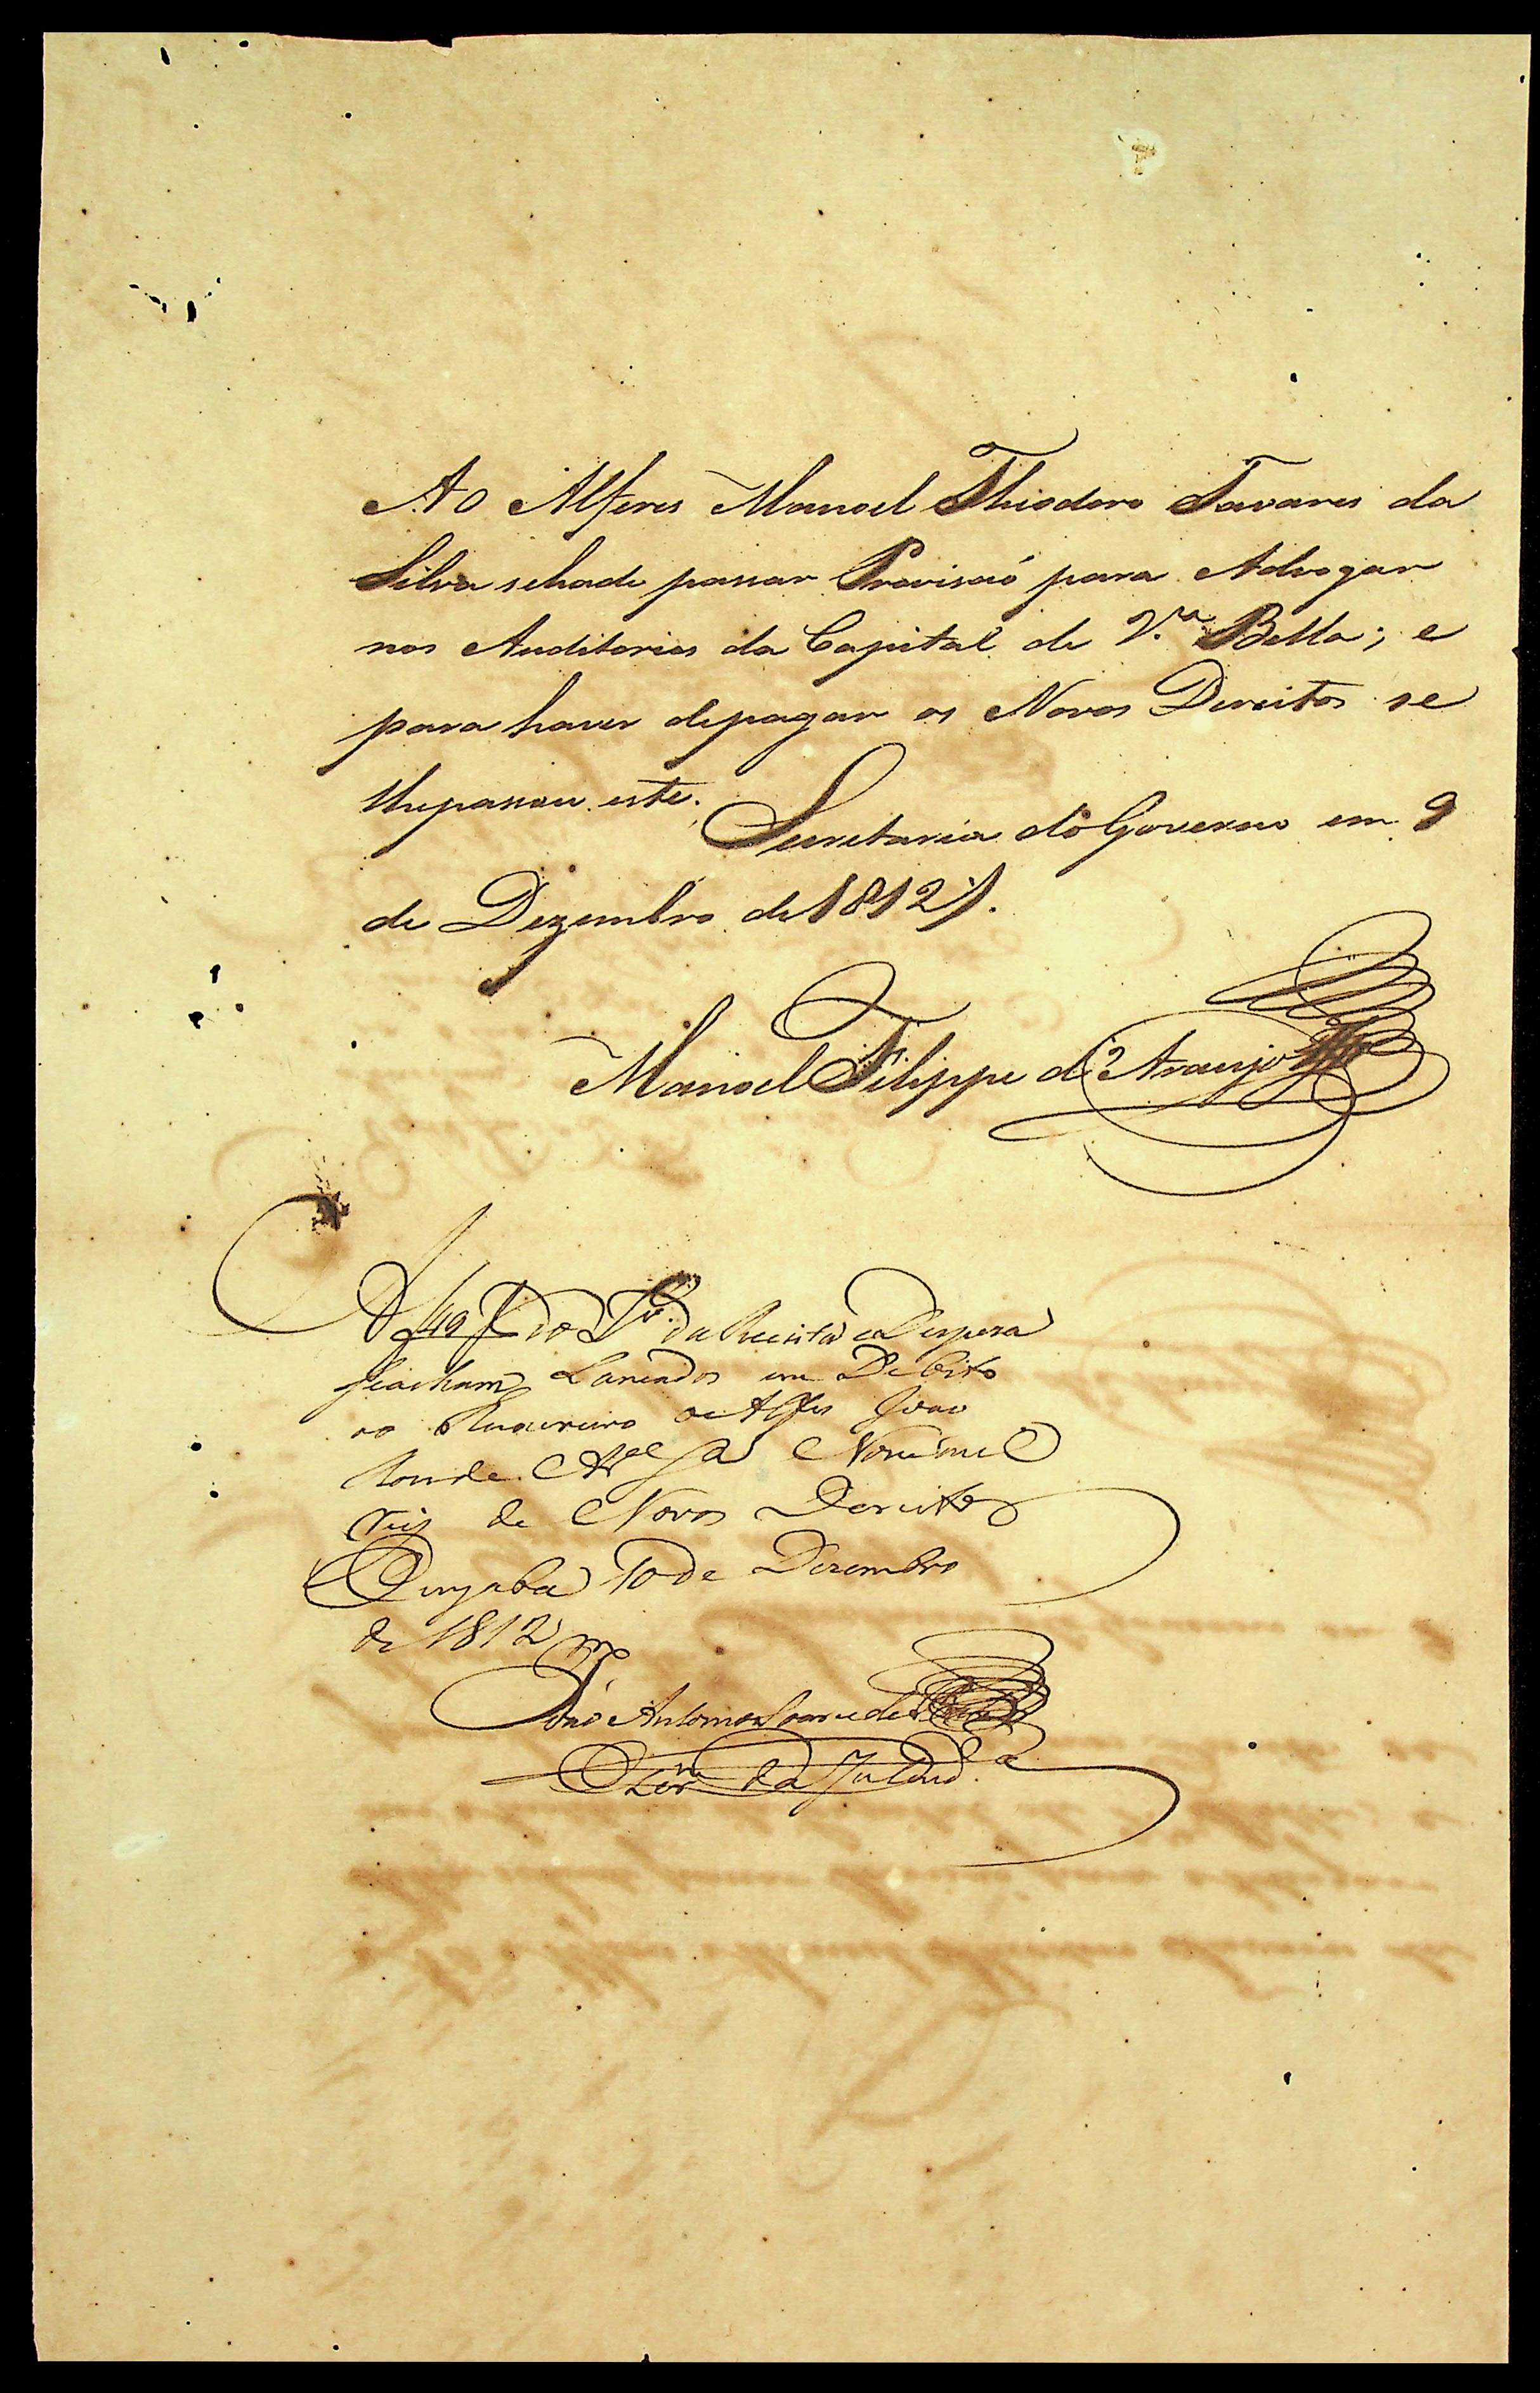 Ao Alferes Manoel Theodoro Tavares da
Silva sehade passar Provisaõ para Advogar
nos Auditorios da Capital de V.ª Bella; e
para haver depagar os Novos Direitos se
lhepassou este. Secretaria do Governo em 9
de Dezembro de 1812
Manoel Filippe de Araujo
A f do L.º da Receita e Despeza
seacham Lancados em Debito
ao Thezoureiro o Alfes Joao
Nove mil
reis de Novos Direitos
Cuyaba 10 de Dezembro
de 1812
João Antonio
da